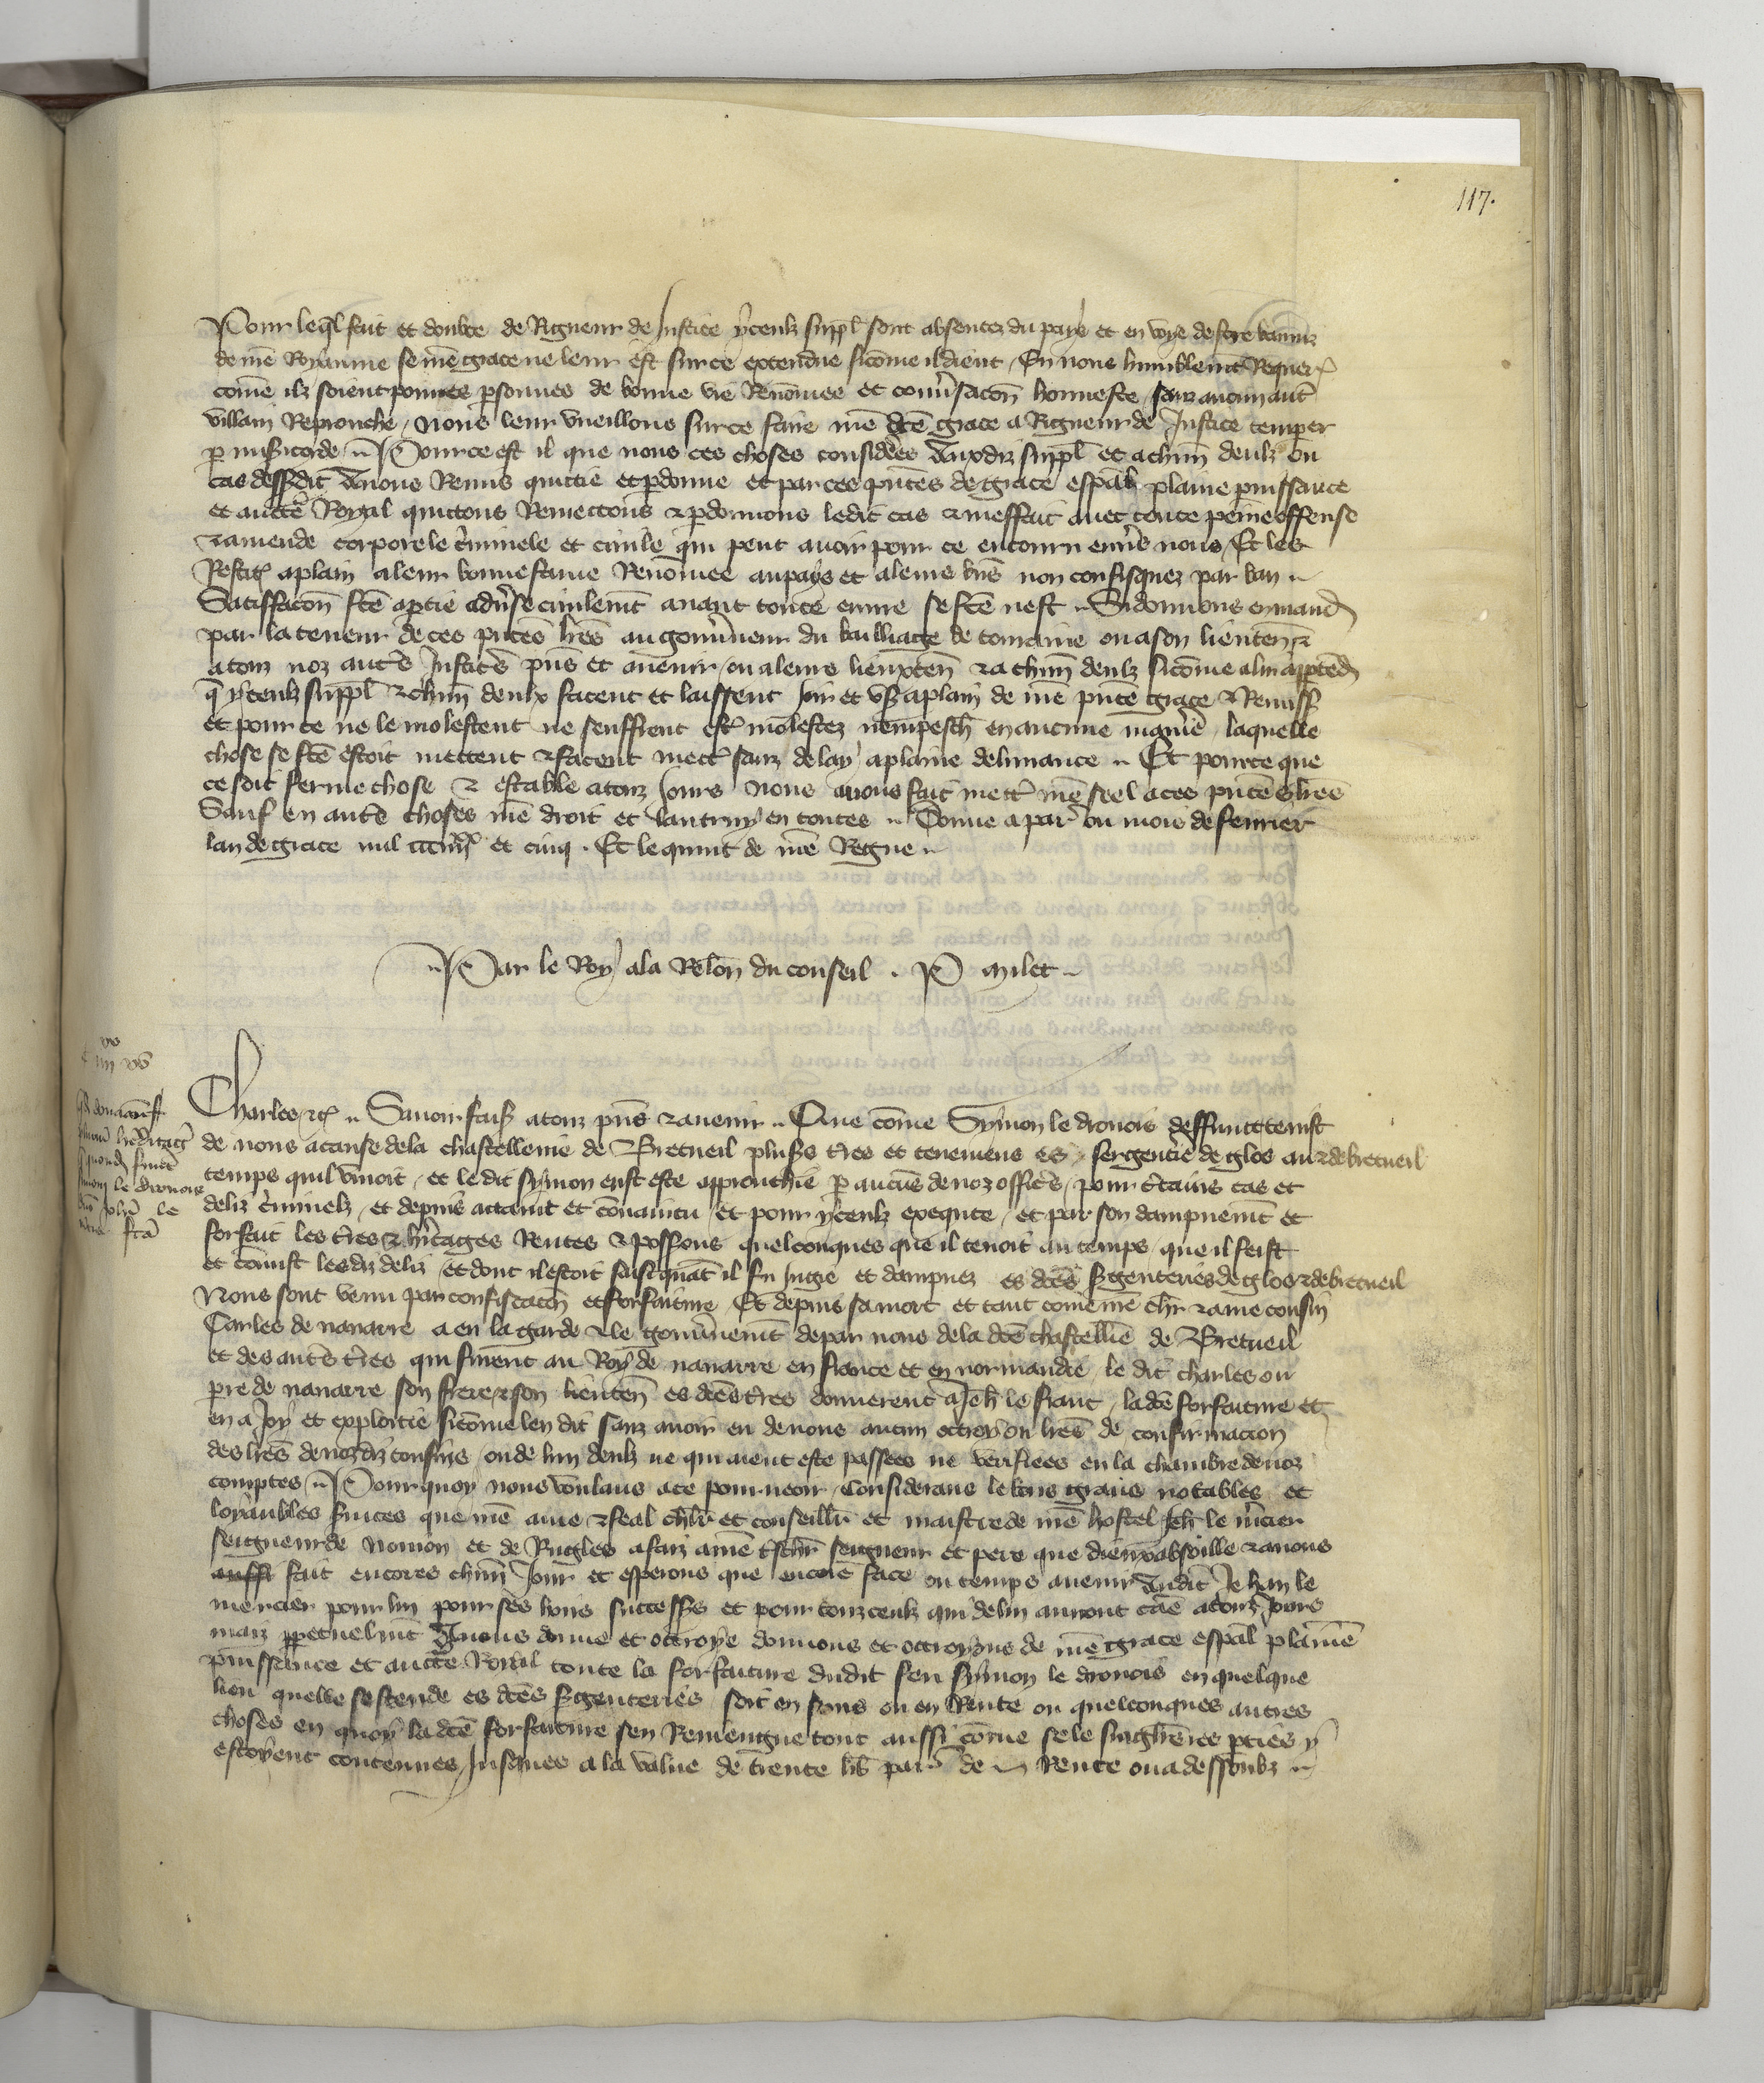 117.
Pour leql fait et doubte de Rigueur de Justice yceulx suppl sont absentez du pays et en voye destre banniz
de nre Royaume se nre grace ne leur est sur ce extendue sicome il dient / En nous humblemt Requer
come ilz soient poures psonnes de bonne vie Renomee et conusacon honneste sanz aucun autre
villain Reprouche / Nous leur vueillons sur ce faire nre dce grace a Rigueur de Justice temper
p misicorde .. Pource est il que nous ces choses considees Auxdiz suppl et a chun deulx ou
cas dessusdit Avons Remis quittie et pdonne et par ces pntes de grace espal plaine puissance
et auctte Royal quittons Remettons & pdonnons ledit cas & meffait avec toute peine offense
& amende corporele criminele et civile qui peut avoir pour ce encouru envs nous / Et les
Restit a plain a leur bonne fame Renomee au pays et a leurs biens non confisquez par ban ..
Satisfacon fce a ptie adverse civilemt avant toute euvre se fce nest .. Si donnons en mand
par la teneur de ces pntes lres au gouvneur du bailliage de touraine ou a son lieuten &
a touz noz autres Justices pns et avenir / ou a leurs lieuxten & a chun deulx sicome a lui appted
q yceulx suppl & chun deulx facent et laissent Joir et user a plain de nre pnte grace & Remiss
et pour ce ne le molestent ne seuffrent est molestez nempesch en aucune maniere / laquelle
chose se fce estoit mettent & facent mett sanz delay a plaine delivrance .. Et pource que
ce soit ferme chose & estable a touz Jours Nous avons fait mett nre seel a ces pntes lres
Sauf en autres choses nre droit et lautruy en toutes .. Donne a par ou mois de fevrier
lan de grace mil ccc iiii xx et cinq . Et le quint de nre Regne ..
.. Par le Roy a la Relon du conseil . P Milet ..
Charles &c .. Savoir fais a touz pns & avenir .. Que come Symon le dronois deffunct tenist
de nous a cause de la chastellenie de Bretueil pluss tres et tenemens es sergentie de glos & de bretueil au
temps quil vivoit / et le dit symon eust este approuchie p aucuns de noz offices / pour ctains cas et
deliz criminelz / et depuis attaint et convaincu / et pour yceulx exequte / et par son dampnemt et
forfait les tres & hitages Rentes & possons quelconques que il tenoit au temps que il feist
et comist lesdiz deliz et dont il estoit saisi quat il fu Jugie et dampnez es dces sgenteries de glos & de bretueil
Nous sont venu par confiscacon et forfaiture / Et depuis sa mort et tant come nre chr & ame cousin
Carles de navarre a eu la garde & le gouvnemt de par nous de la dce chastellie de Bretueil
et des autres tres qui furent au Roy de navarre en france et en normandie / le dit charles ou
pre de navarre son frere & son lieuten es dces tres donnerent a Jeh le franc / la dce forfaiture et
en a Joy et exploitie sicome len dit sanz avoir eu de nous aucun octroy ou lres de confirmacion
des lres de nozdiz cousins / ou de lun deulx ne qui aient este passees ne verifiees en la chambre de noz
comptes / .. Pourquoy nous voulans a ce pourveoir / Considerans les bons grans notables et
loyaulbles suices que nre ame & feal chlr et conseillr et maistre de nre hostel Jeh le mcier
seigneur de Novion et de Rugles a faiz a nre treschr seigneur et pere que dieux absoille & a nous
aussi fait encores chun Jour et esperons que encore face ou temps avenir Audit Jehan le
mercier pour lui pour ses hoirs successrs et pour touz ceulx qui de lui auront cause a touz Jours
maiz ppetuelmt Avons donne et octroye donnons et octroyons de nre grace espal plaine
puissance et auctte Royal toute la forfaiture dudit feu symon le dronois en quelque
lieu quelle sestende es dces sgenteries soit en fons ou en Rente ou quelconques autres
choses en quoy la dce forfaiture sen Reviengne tout aussi come se les singlieres pties y
estoyent contenues / Jusques a la value de trente lb par de .. Rente ou a dessoubz ..
donaconis
hereditage
quond
Simon le dronois
Joh le
fca